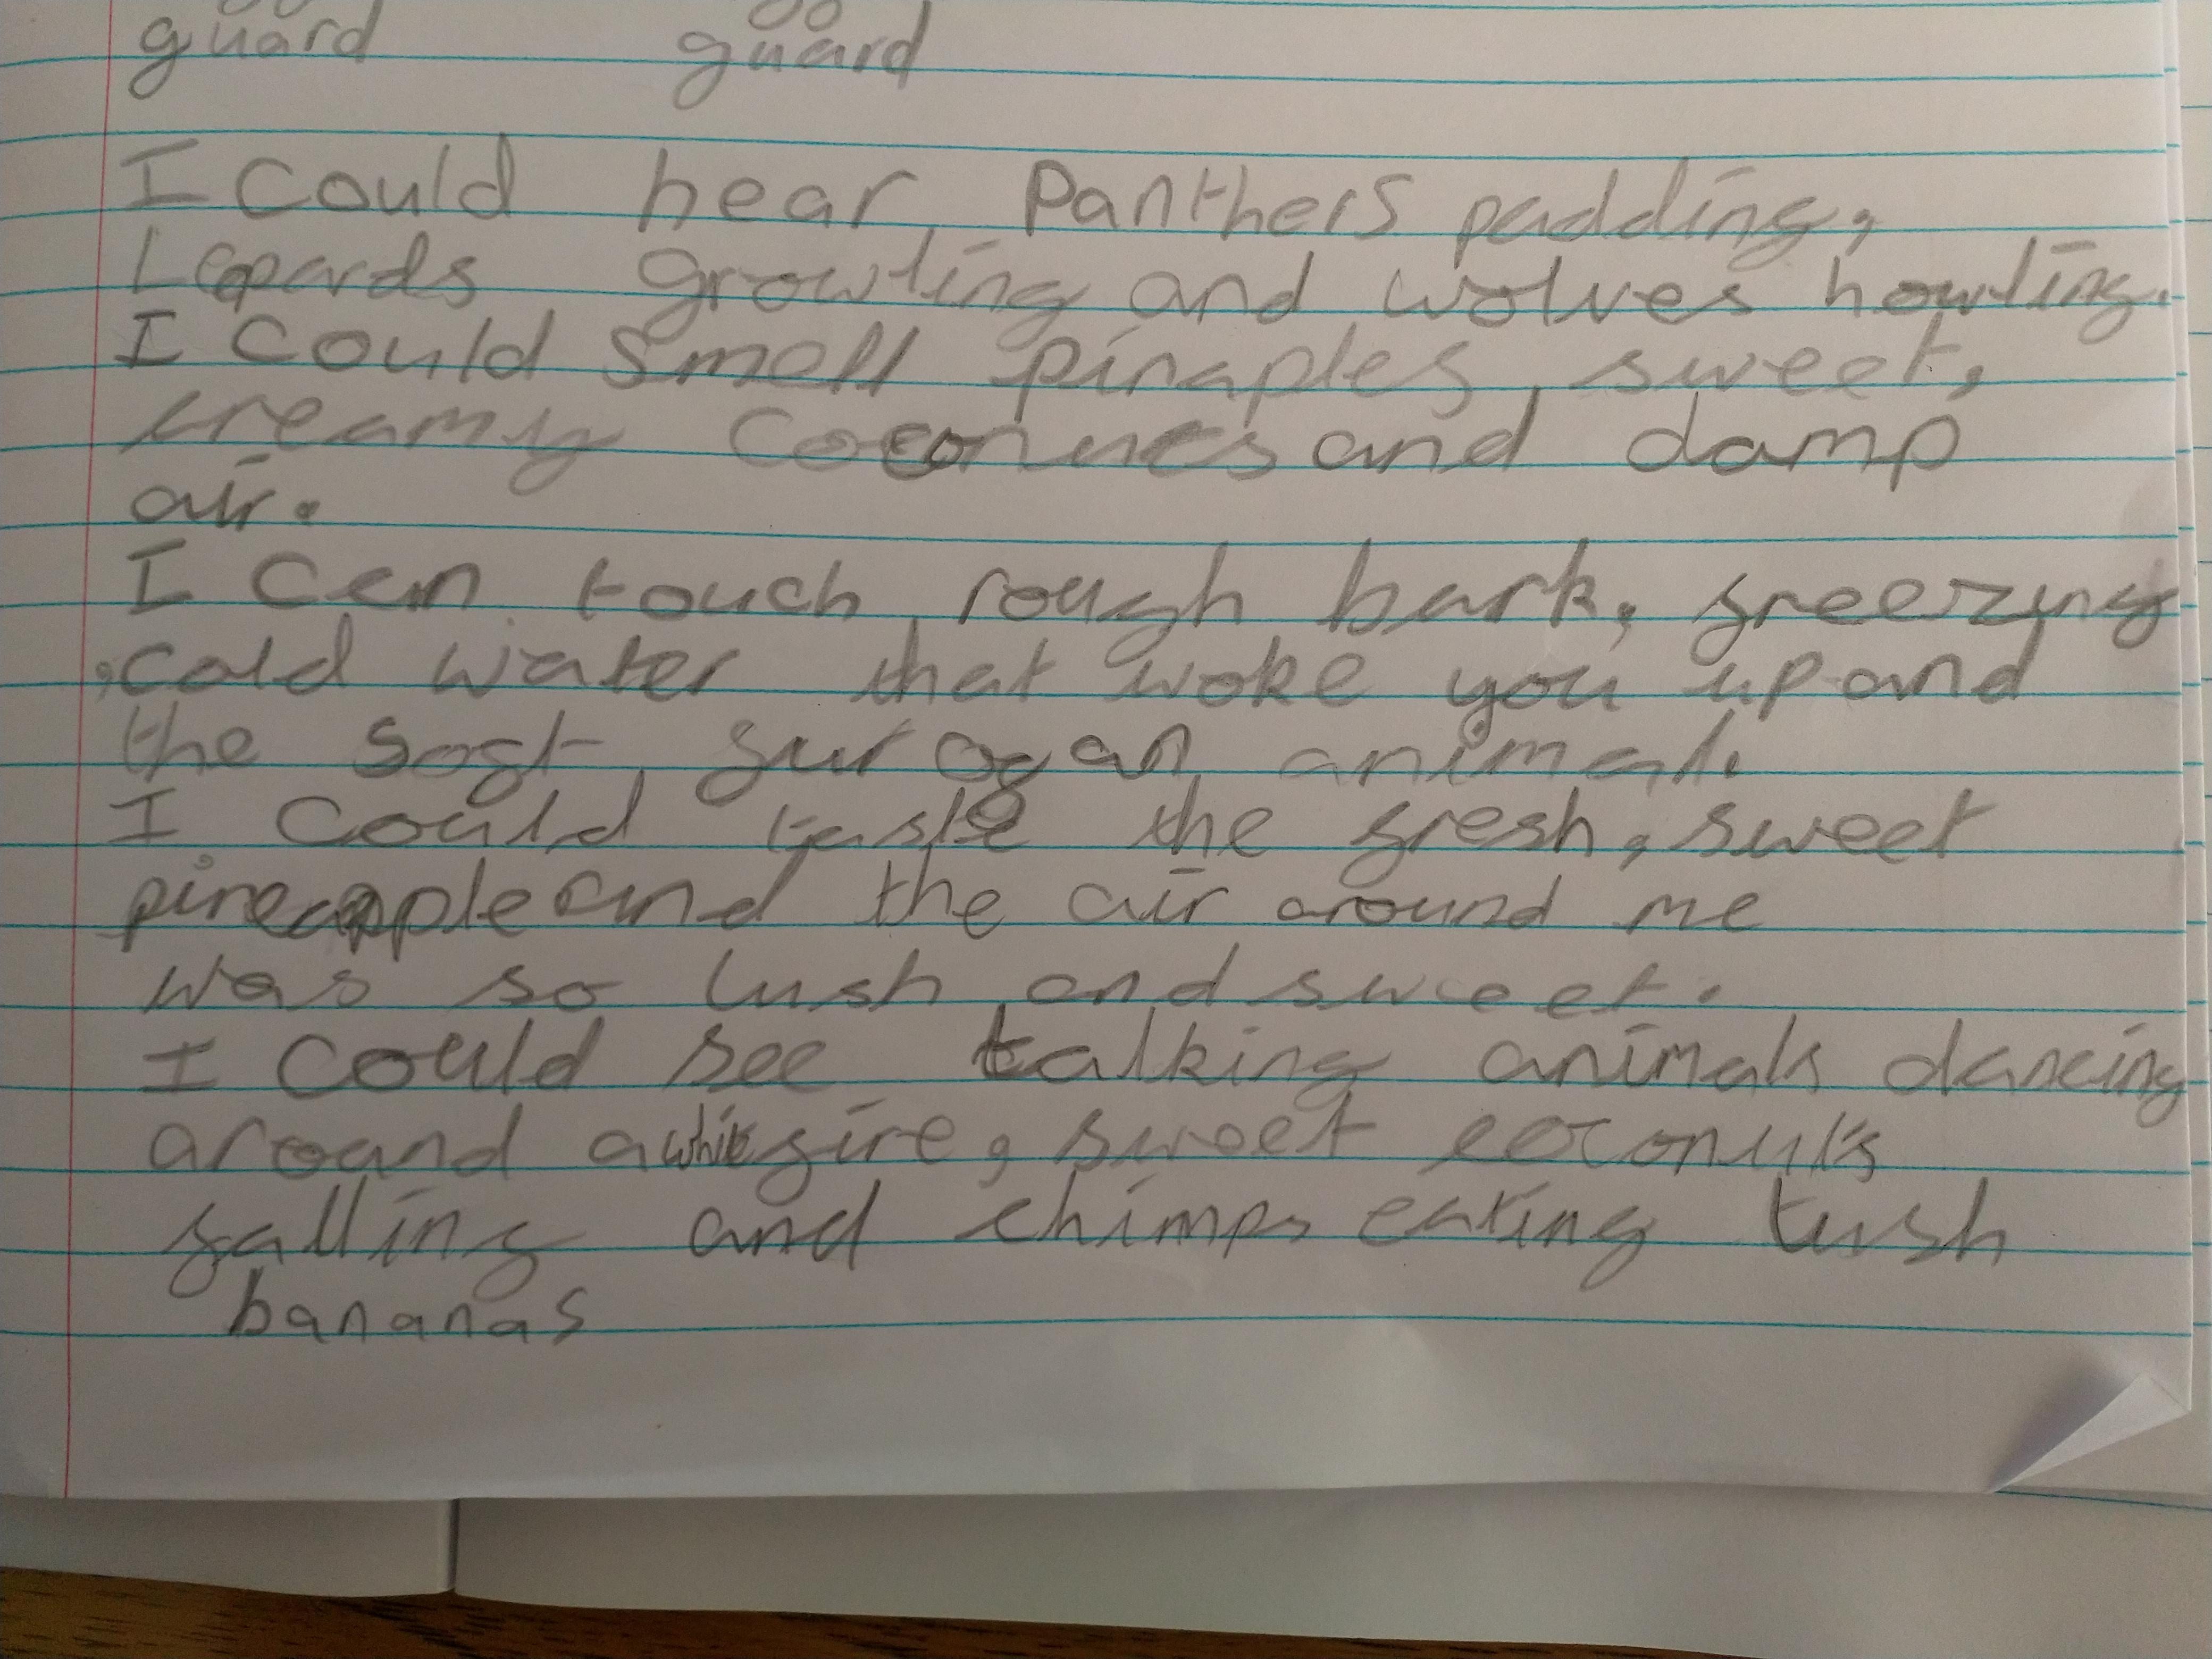 guard guard
I could hear Panthers padding,
Leopards growling and wolves howling.
I could smell pinaples, sweet,
creamy coconuts and damp
air.
I can touch rough bark, freezing
,cold water that woke you up and
the soft fur of an animal.
I could taste the fresh, sweet
pineapple and the air around me
was so lush and sweet.
I could see talking animals dancing
around a white fire, sweet coconuts
falling and chimps eating lush
bananas